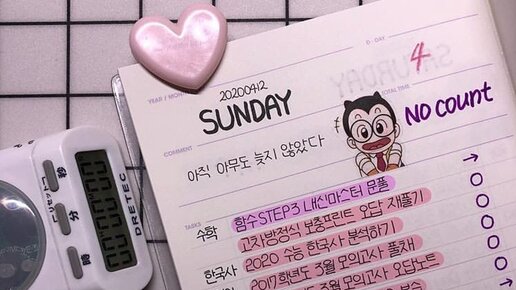 YEAR / MONTH
D - DAY
4
20200412
SUNDAY
TOTAL TIME
NO count
COMMENT
아직 아무도 늦지 않았다
TASKS
수학
함수 STEP3 내신마스터 문풀
고차방정식 보충프린트 오답 재풀기
한국사
2020 수능 한국사 분석하기
2017학년도 3월 모의고사 풀채
3월 모의고사 오답노트
リセット
秒
分
00:00
DRETEC